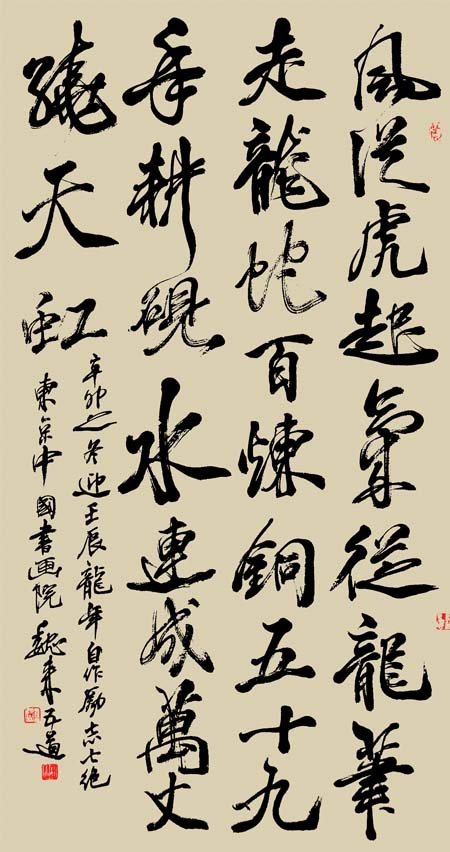 風從虎起氣從龍筆
走龍蛇百煉銅五十九
年耕硯水連成萬丈
繞天虹
辛卯之冬迎壬辰龍年自作勵志七絕
東京中國書画院 魏来五道